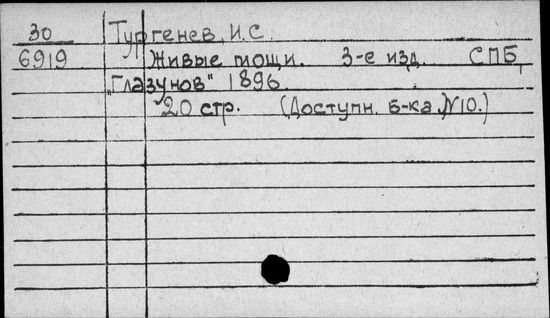 30 Тургенев, И.С.
6919 Живые мощи. 3-е изд. СПБ,
"Глазунов" 1896.
20 стр. (Доступн. б-ка. №10.)